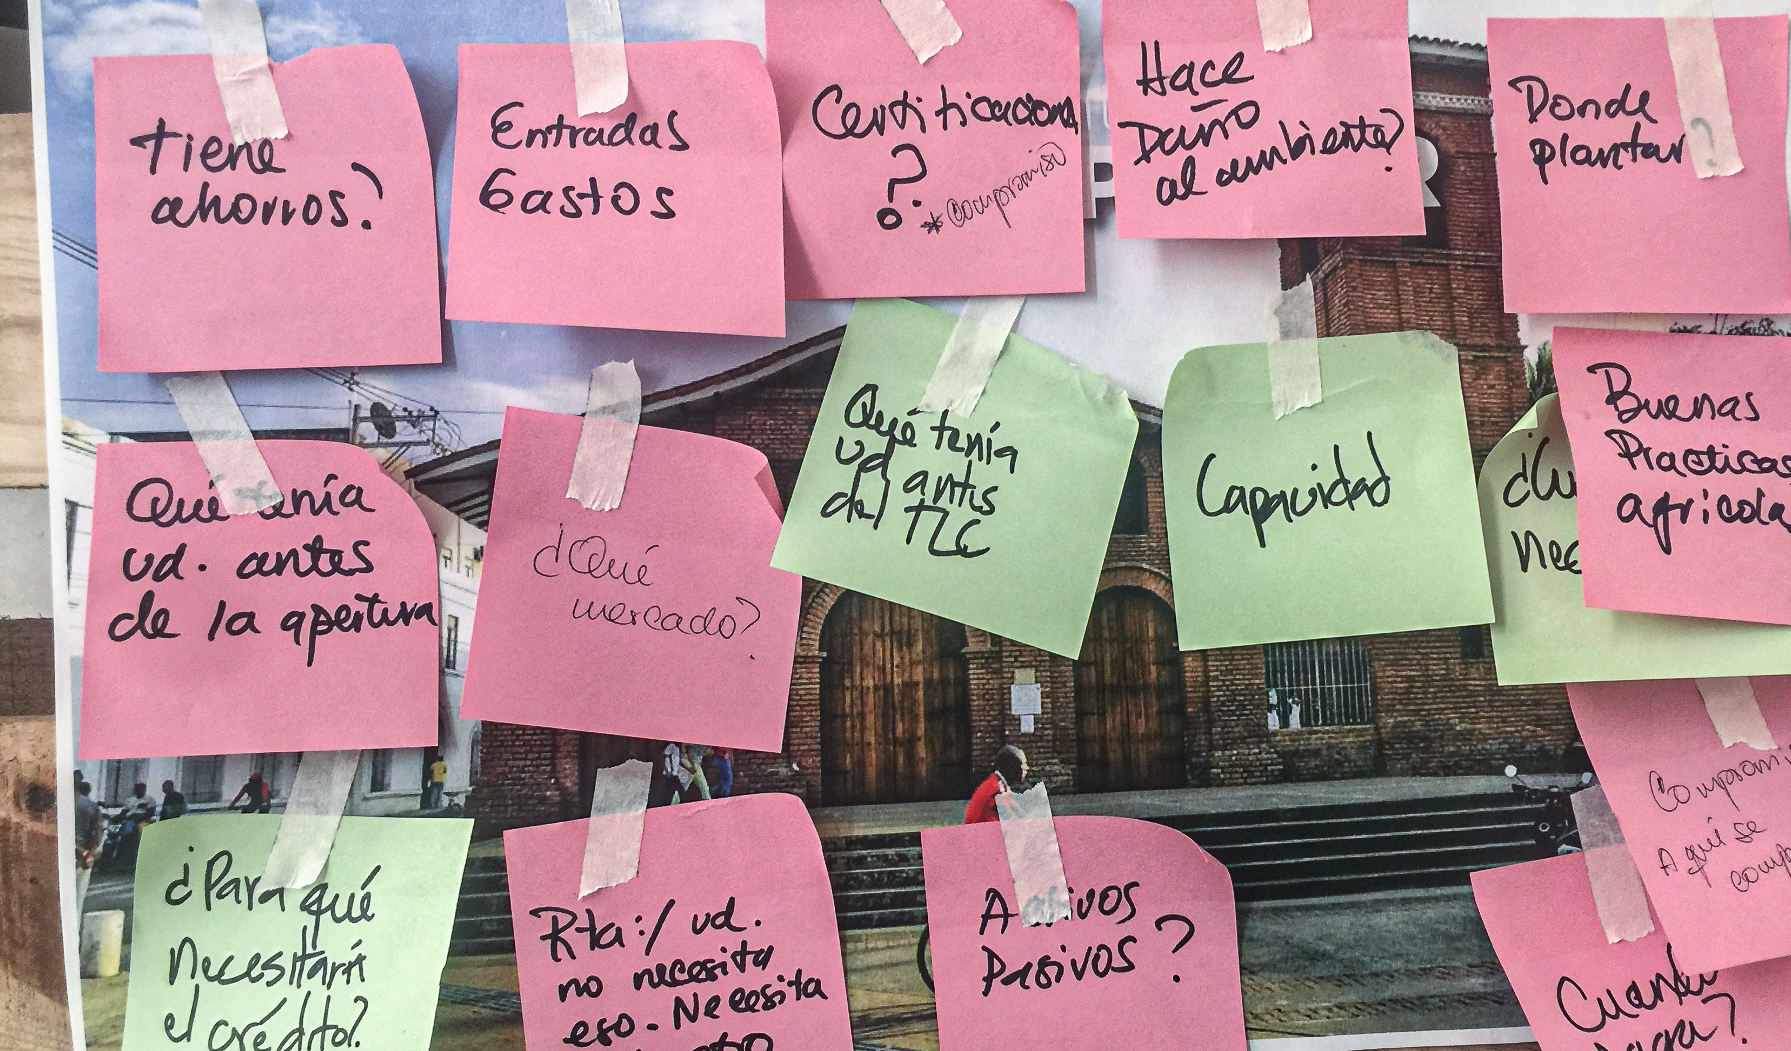 Tiene
ahorros?
Entradas
Gastos
Certificaciona
?
*Compromiso
Hace
Daño
al ambiente?
Donde
plantar?
Qué tenía
ud. antes
de la apertura
¿Qué
mercado?
Qué tenía
ud antes
del TLC
Capacidad
Buenas
Practicas
agricola
¿Cu
Nec
¿Para qué
Necesitaría
el crédito?
Rta:/ ud.
no necesita
eso. Necesita
Activos
Pasivos?
Compromi
Aquí se
comp
Cuando
P
R